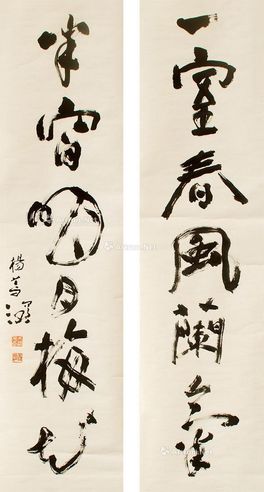 一室春風蘭氣
半窗明月梅花
楊善深